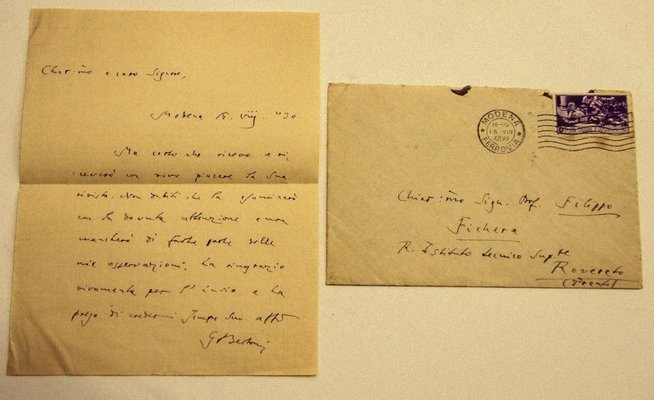 Chiar:mo e caro Signore,
Modena 16. VIII "30
Ma certo che ricevo e ri
ceverò con vivo piacere la sua
rivista. Non dubiti che la esaminerò
con la dovuta attenzione e non
mancherò di farle parte delle
mie osservazioni. La ringrazio
vivamente per l'invio e La
prego di credermi sempre Suo affº
GBertoni
MODENA
18-19
16 VIII
FERROVIA
Chiar:mo Sign. Prof. Filippo
Fichera
R. Istituto tecnico Supre
Rovereto
(Trento)